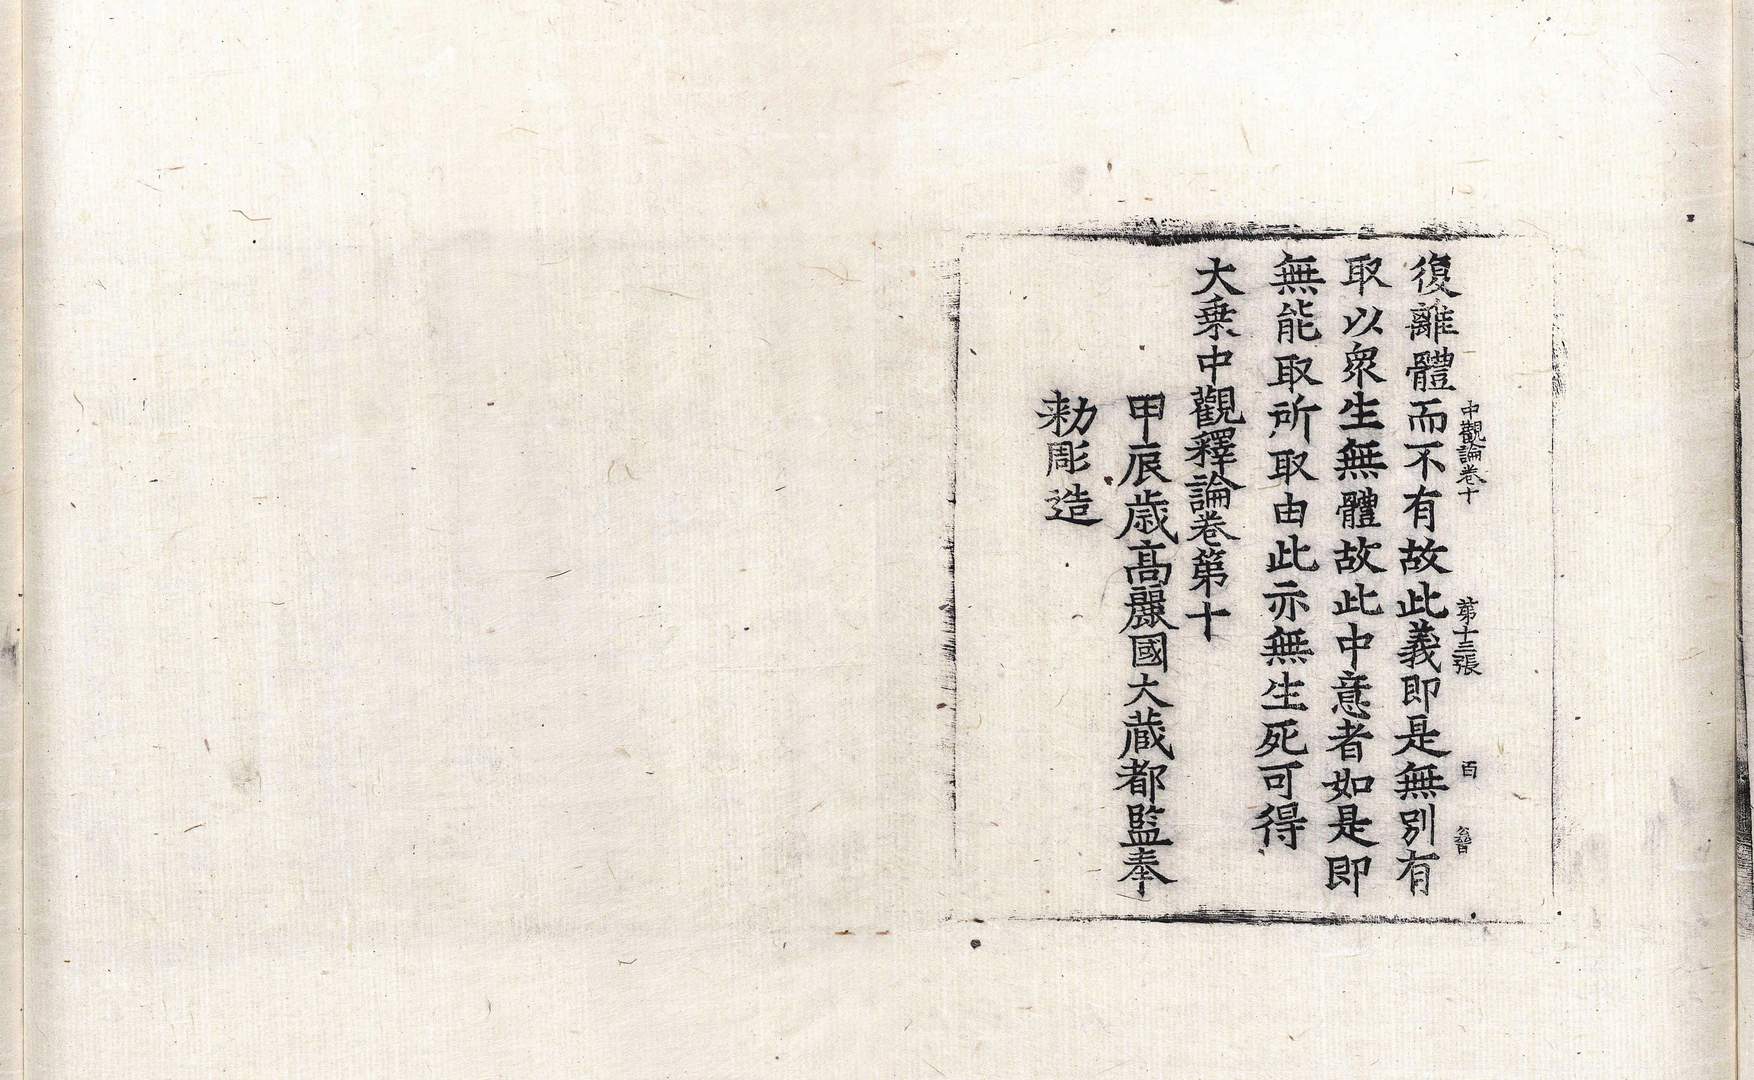 中觀論卷十 第十三張 百
復離體而不有故此義即是無別有
取以衆生無體故此中意者如是即
無能取所取由此亦無生死可得
大乗中觀釋論卷第十
甲辰歳高麗國大藏都監奉
勅彫造